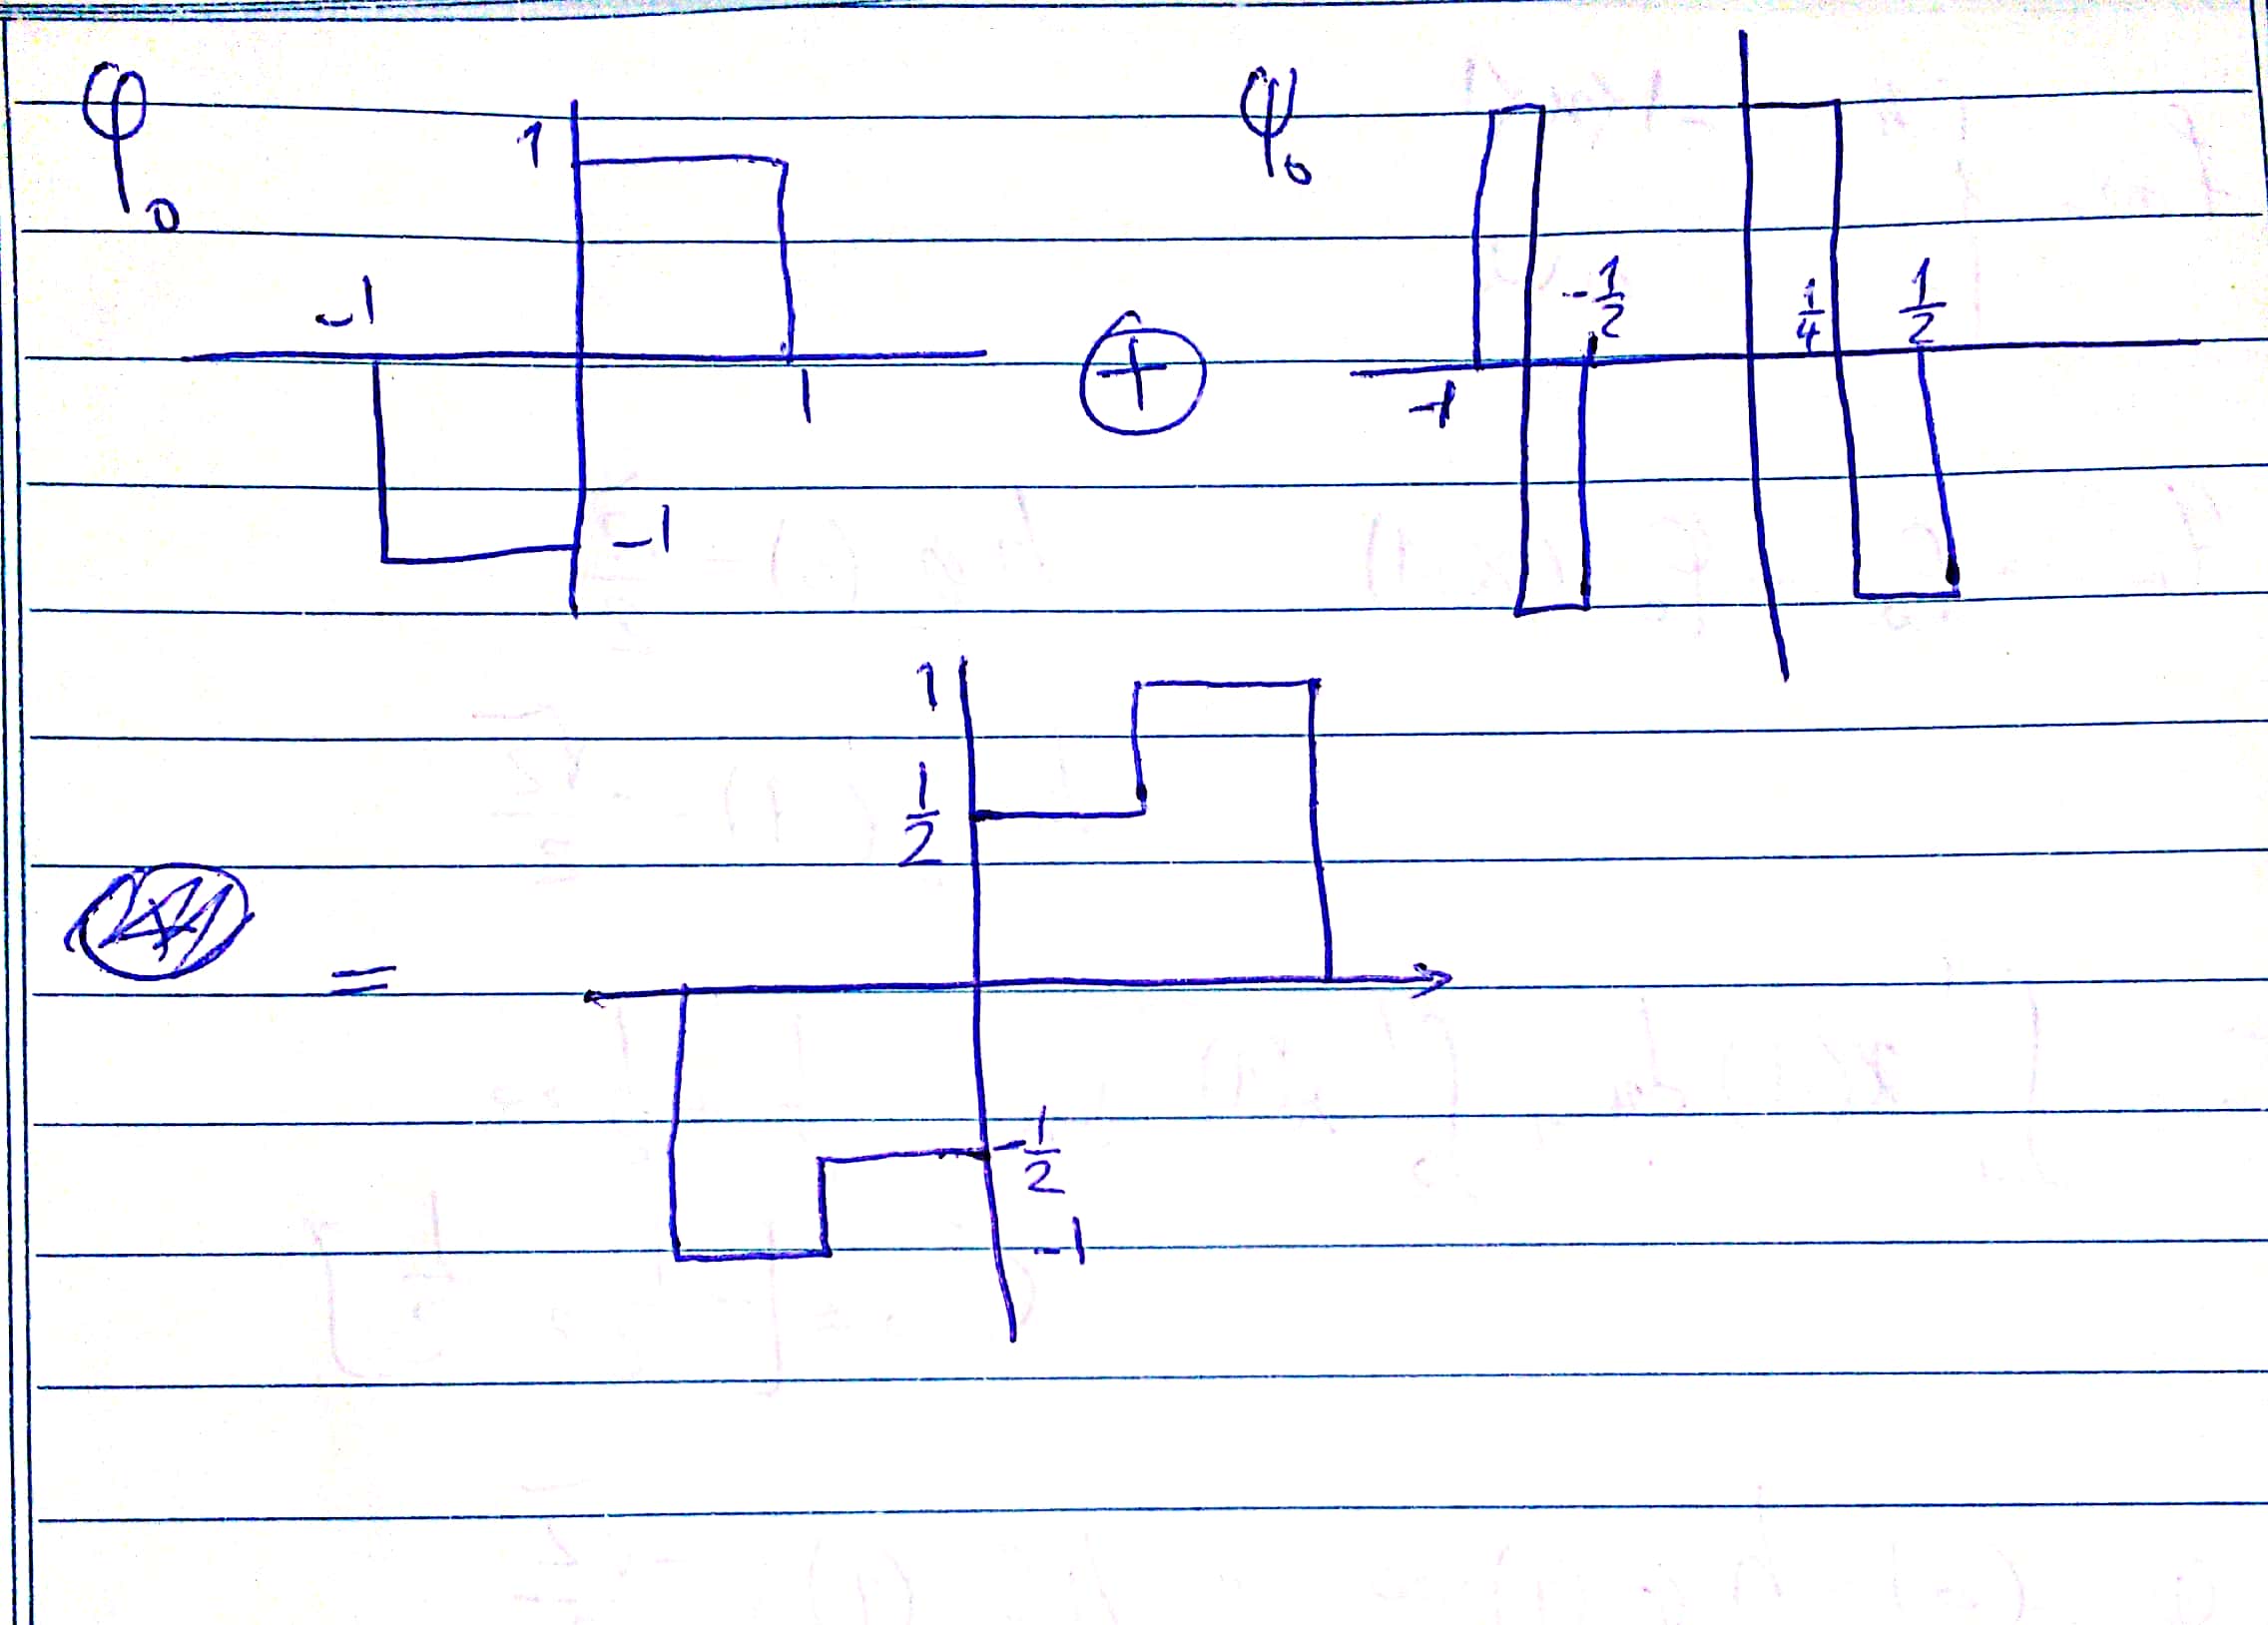 φ₀
1
-1
1
-1
+
ψ₀
-1
-1/2
1/4
1/2
1
1/2
=
-1/2
-1